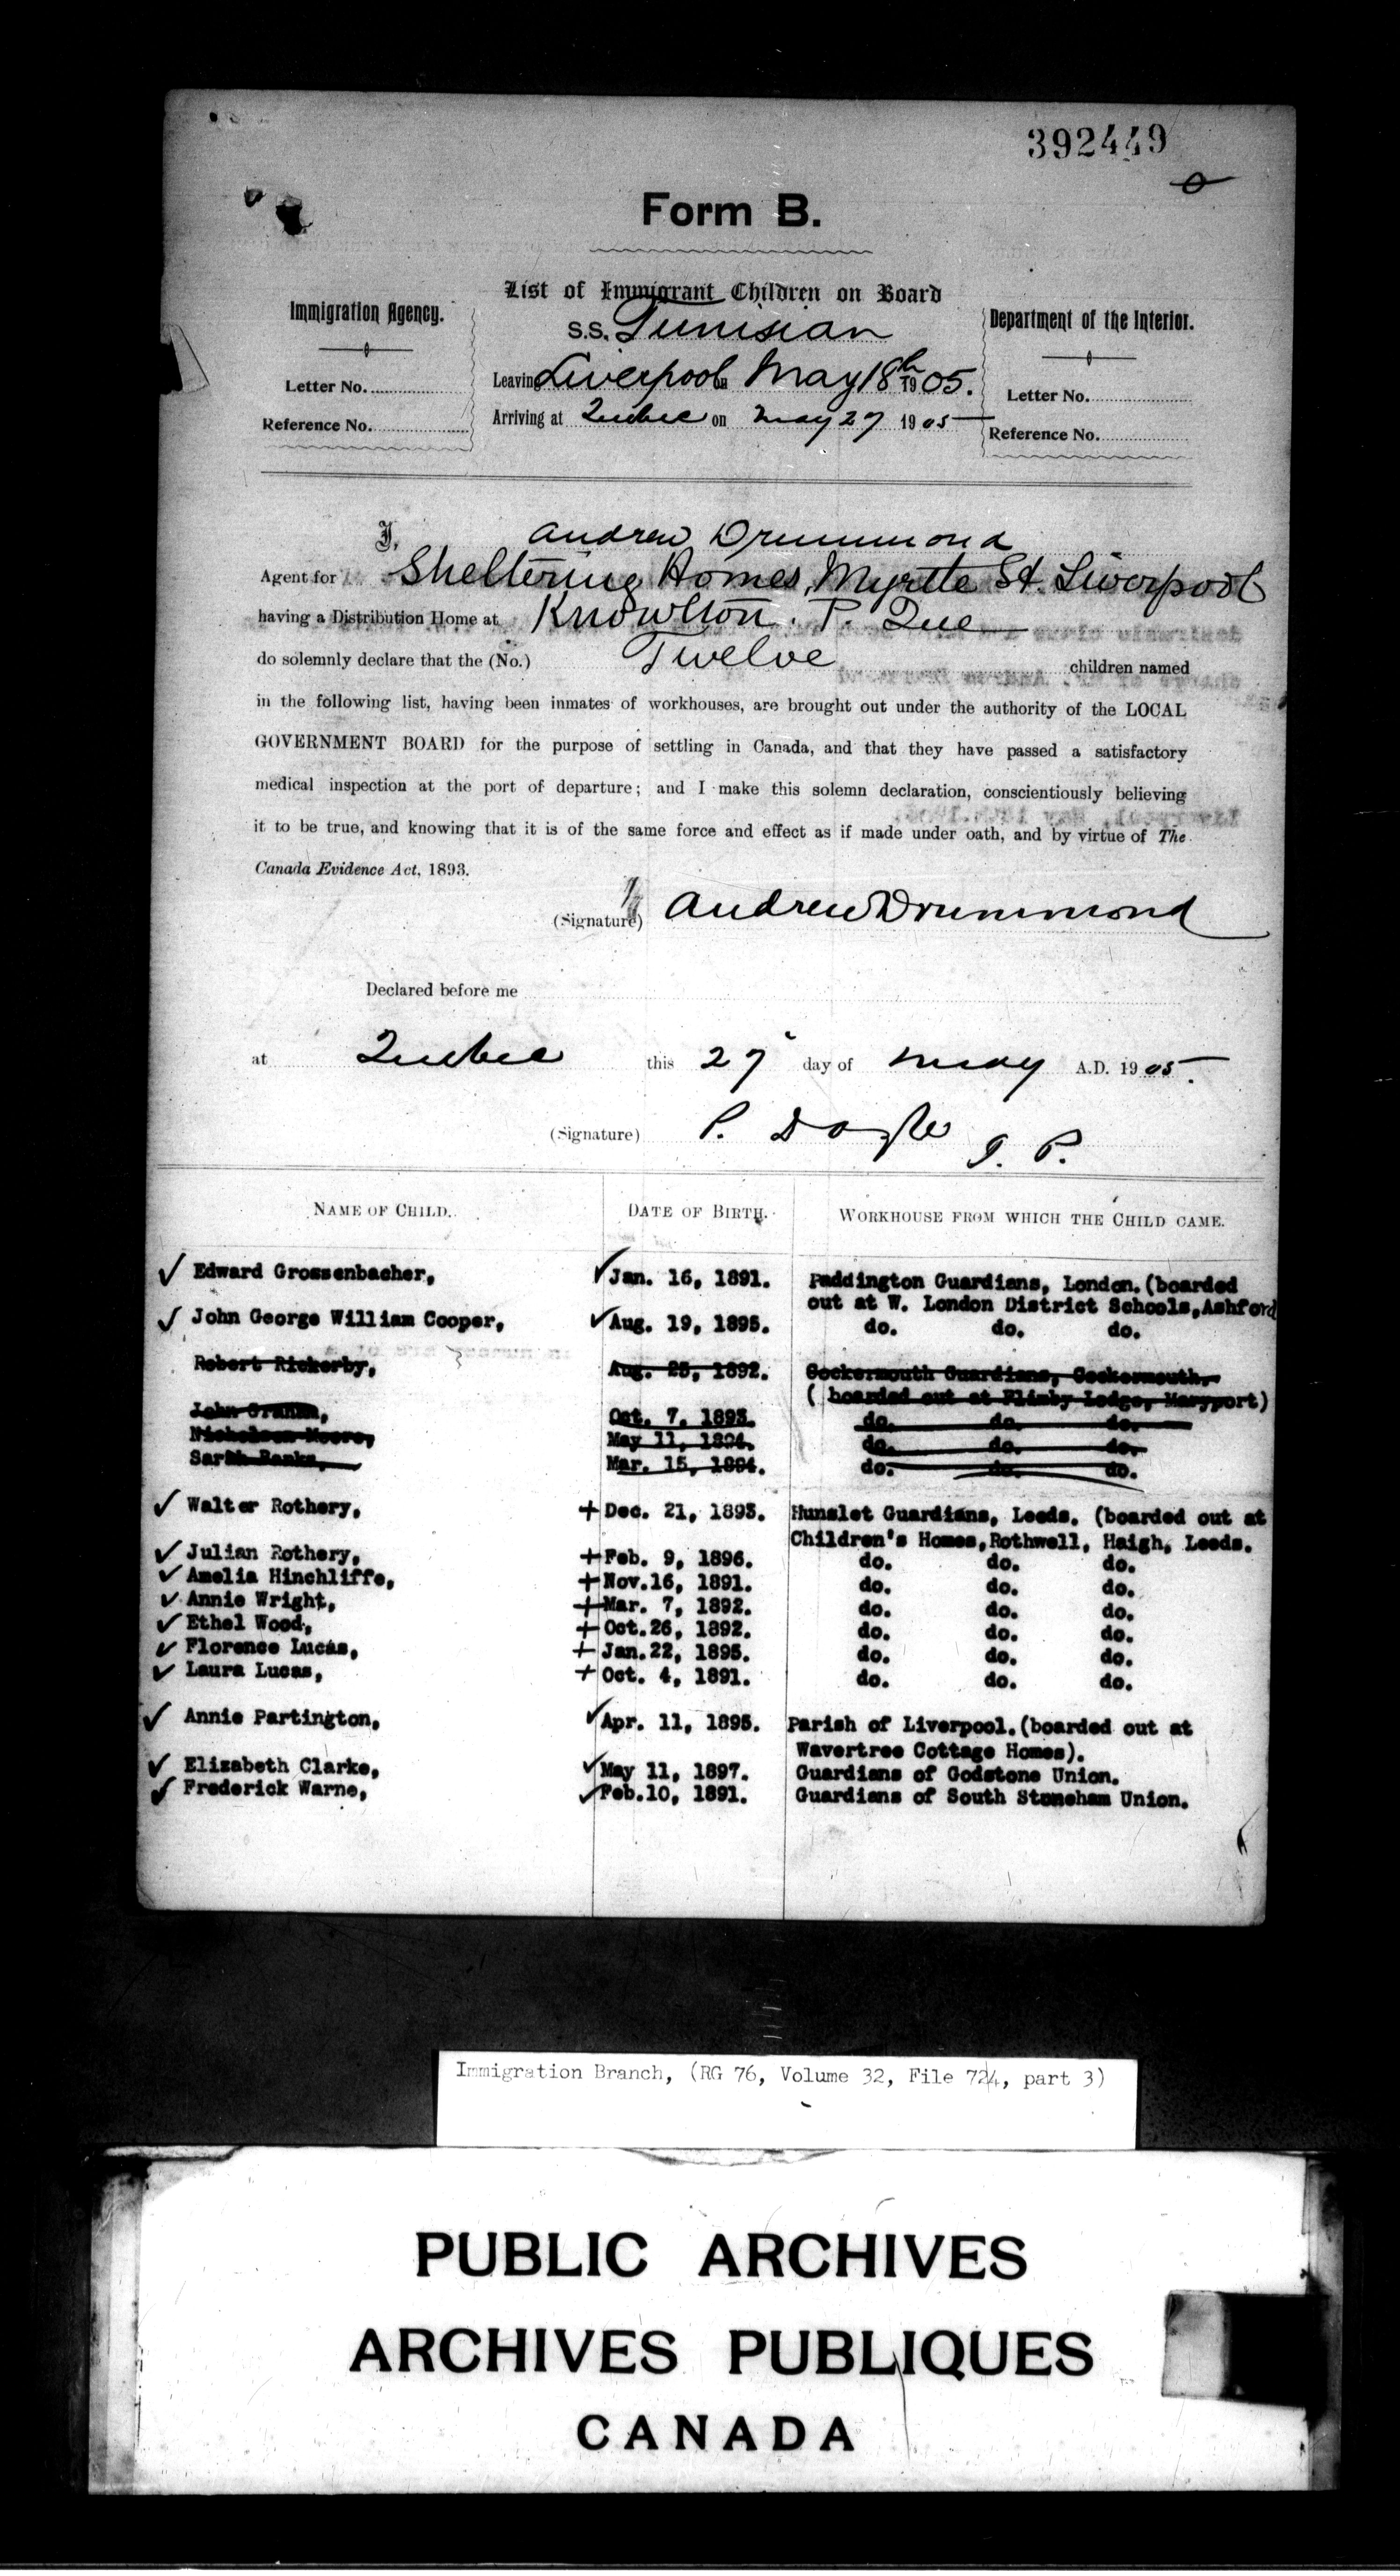 392449
Form B.
List of Immigrant Children on Board
S.S. Tunisian
Leaving Liverpool on May 18th 1905.
Arriving at Quebec on May 27 1905
Immigration Agency.
Letter No.
Reference No.
Department of the Interior.
Letter No.
Reference No.
I, Andrew Drummond
Agent for Sheltering Homes, Myrtle St. Liverpool
having a Distribution Home at Knowlton. P. Que
do solemnly declare that the (No.) Twelve children named
in the following list, having been inmates of workhouses, are brought out under the authority of the LOCAL
GOVERNMENT BOARD for the purpose of settling in Canada, and that they have passed a satisfactory
medical inspection at the port of departure; and I make this solemn declaration, conscientiously believing
it to be true, and knowing that it is of the same force and effect as if made under oath, and by virtue of The
Canada Evidence Act, 1893.
(Signature) Andrew Drummond
Declared before me
at Quebec this 27 day of May A.D. 1905.
(Signature) P. Doyle J. P.
NAME OF CHILD. DATE OF BIRTH. WORKHOUSE FROM WHICH THE CHILD CAME.
✓ Edward Grossenbacher, ✓ Jan. 16, 1891. Paddington Guardians, London. (boarded
out at W. London District Schools, Ashford
✓ John George William Cooper, ✓ Aug. 19, 1895. do. do. do.
Robert Rickerby, Aug. 25, 1892. Cockermouth Guardians, Cockermouth,
( boarded out at Flimby Lodge, Maryport)
John Graham, Oct. 7, 1893. do. do. do.
Nicholson Moore, May 11, 1894. do. do. do.
Sarah Banks, Mar. 15, 1894. do. do. do.
✓ Walter Rothery, + Dec. 21, 1893. Hunslet Guardians, Leeds. (boarded out at
Children's Homes, Rothwell, Haigh, Leeds.
✓ Julian Rothery, + Feb. 9, 1896. do. do. do.
✓ Amelia Hinchliffe, + Nov.16, 1891. do. do. do.
✓ Annie Wright, + Mar. 7, 1892. do. do. do.
✓ Ethel Wood, + Oct.26, 1892. do. do. do.
✓ Florence Lucas, + Jan.22, 1895. do. do. do.
✓ Laura Lucas, + Oct. 4, 1891. do. do. do.
✓ Annie Partington, ✓ Apr. 11, 1895. Parish of Liverpool. (boarded out at
Wavertree Cottage Homes).
✓ Elizabeth Clarke, ✓ May 11, 1897. Guardians of Godstone Union.
✓ Frederick Warne, ✓ Feb.10, 1891. Guardians of South Stoneham Union.
Immigration Branch, (RG 76, Volume 32, File 724, part 3)
PUBLIC ARCHIVES
ARCHIVES PUBLIQUES
CANADA